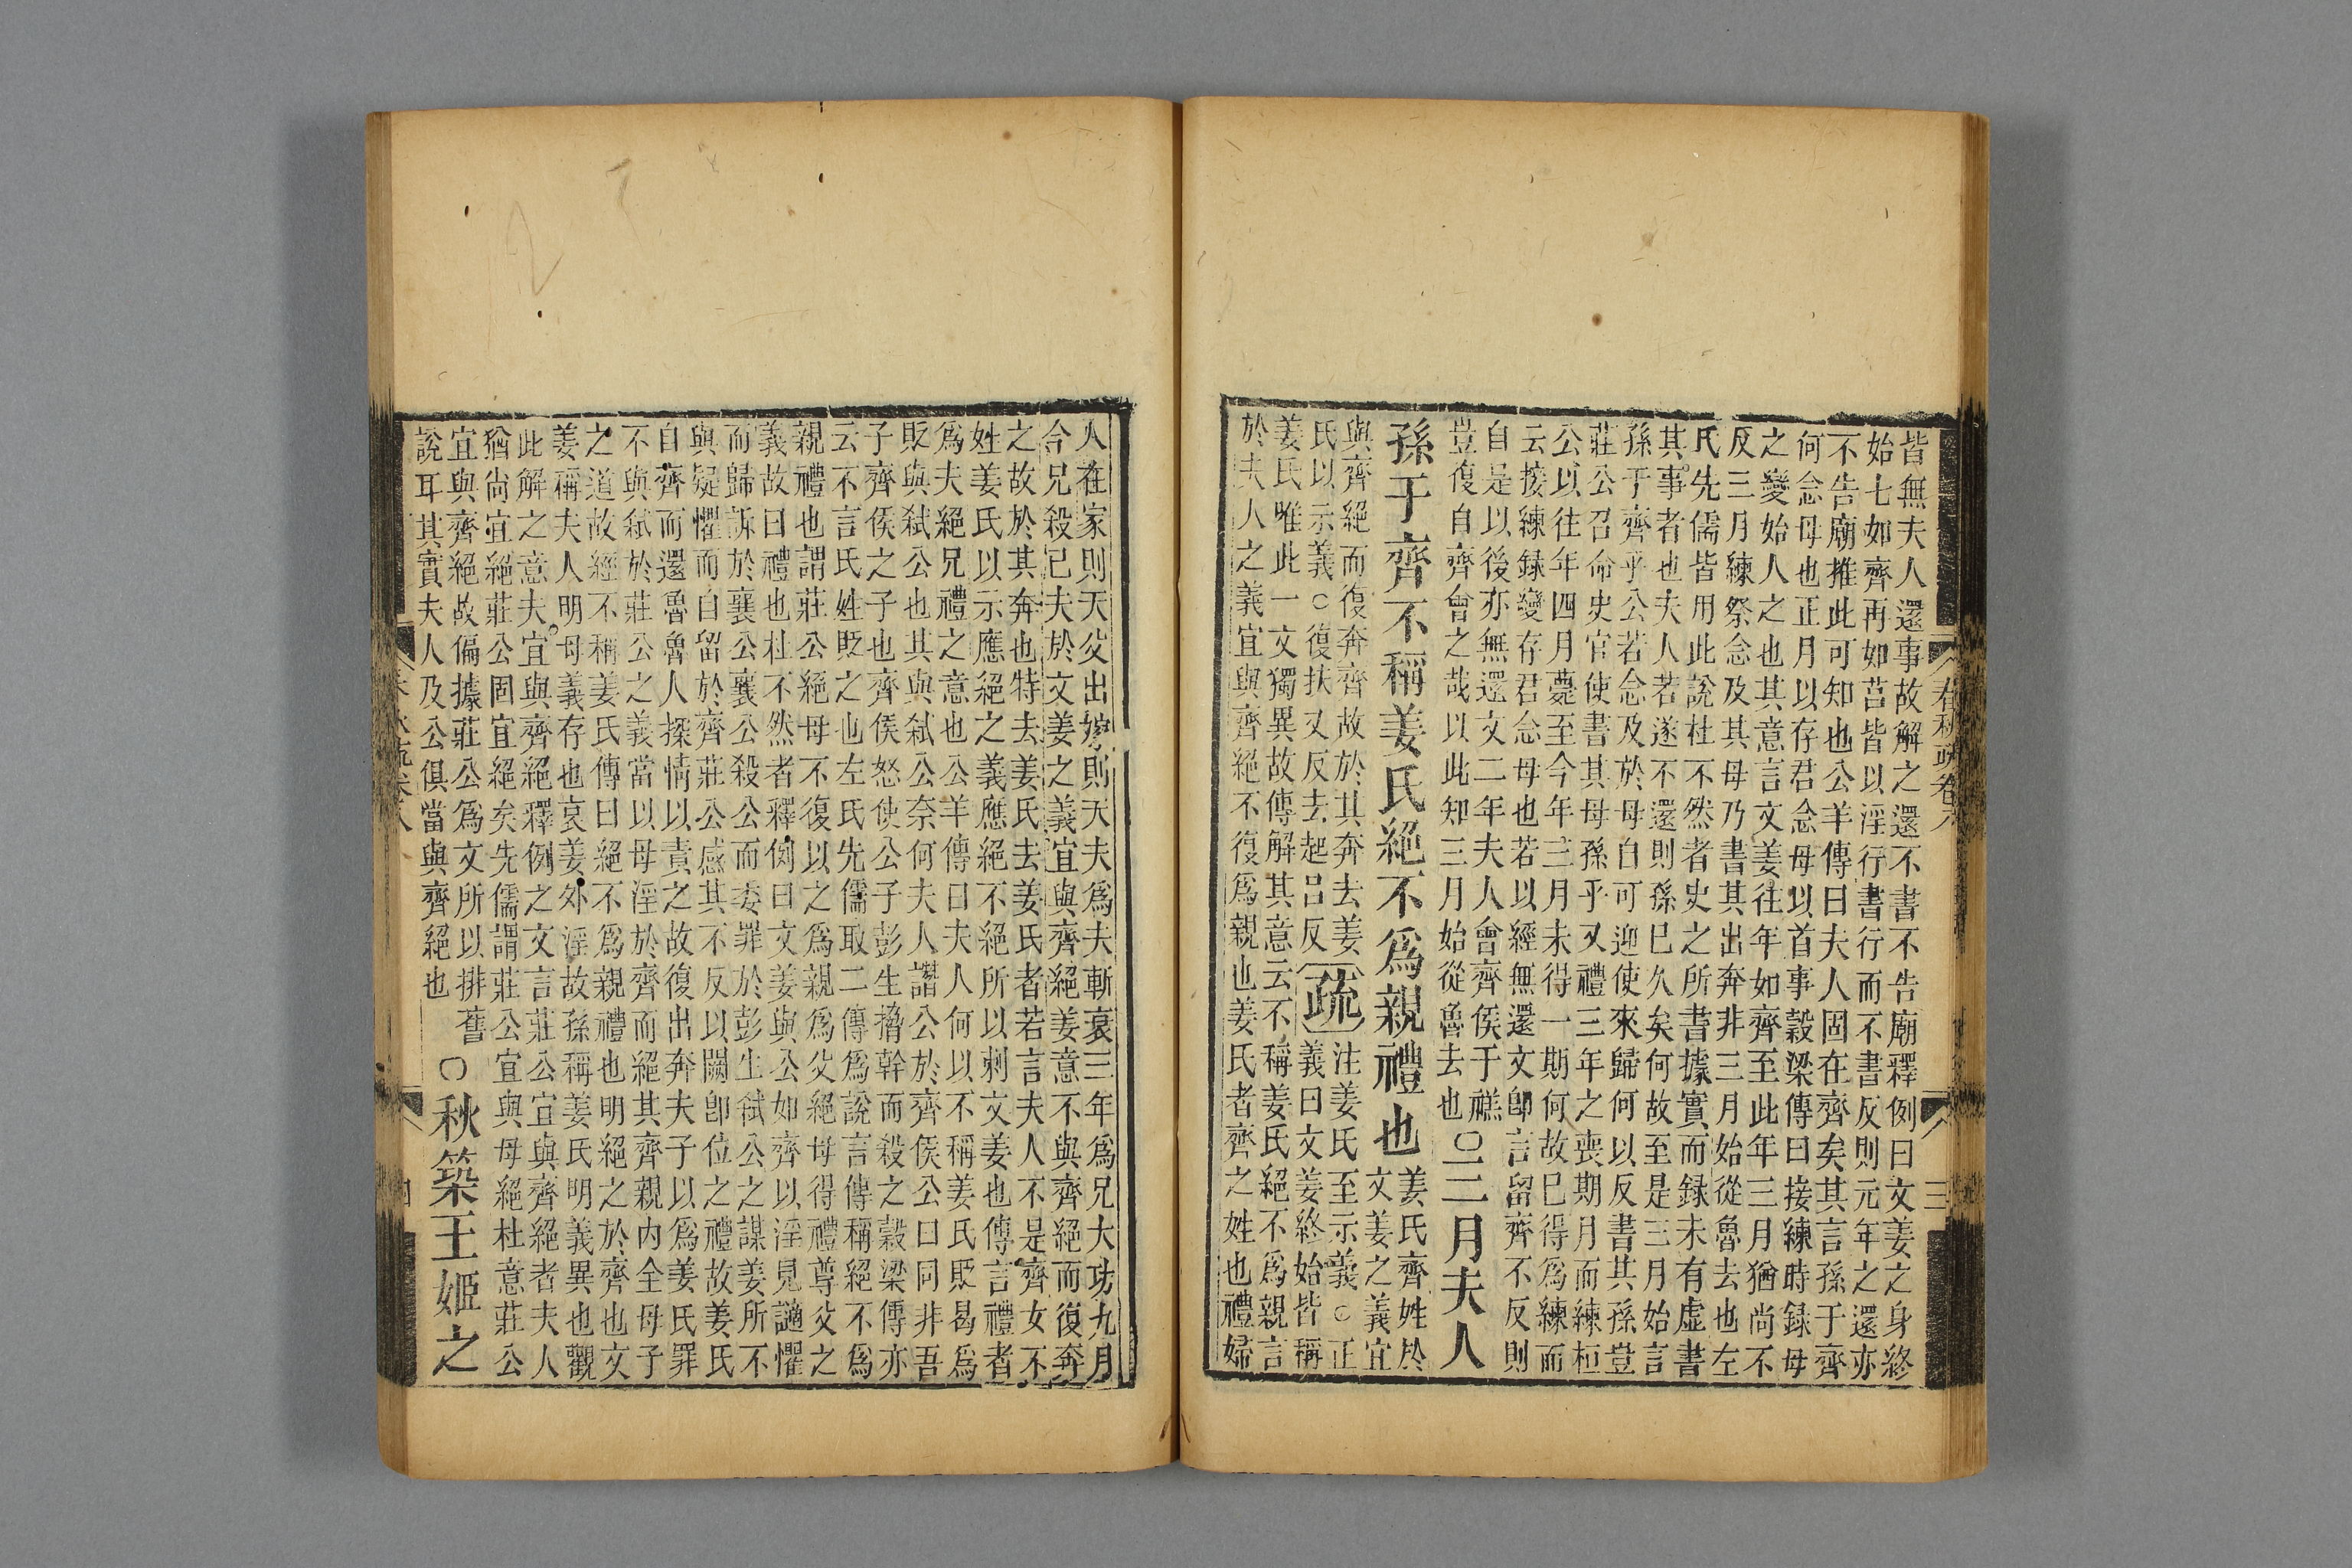 皆無夫人還事故解之還不書不告廟釋例曰文姜之身終
始七如齊再如莒皆以淫行書行而不書反則元年之還亦
不告廟推此可知也公羊傳曰夫人固在齊矣其言孫于齊
何念母也正月以存君念母以首事穀梁傳曰接練時録母
之變始人之也其意言文姜往年如齊至此年三月猶尚不
反三月練祭念及其母乃書其出奔非三月始從魯去也左
氏先儒皆用此說杜不然者史之所書據實而録未有虛書
其事者也夫人若遂不還則孫已久矣何故至是三月始言
孫于齊乎公若念及於母自可迎使來歸何以反書其孫豈
莊公召命史官使書其母孫乎又禮三年之喪期月而練桓
公以往年四月薨至今年三月未得一期何故已得爲練而
云接練録變存君念母也若以經無還文卽言留齊不反則
自是以後亦無還文二年夫人會齊侯于禚
豈復自齊會之哉以此知三月始從魯去也
〇三月夫人
孫于齊不稱姜氏絕不爲親禮也
姜氏齊姓於
文姜之義宜
與齊絕而復奔齊故於其奔去姜
氏以示義○復扶又反去起呂反
疏
注姜氏至示義○正
義曰文姜終始皆稱
姜氏唯此一文獨異故傳解其意云不稱姜氏絕不爲親言
於夫人之義宜與齊絕不復爲親也姜氏者齊之姓也禮婦
春秋疏卷六
三
人在家則天父出嫁則天夫爲夫斬衰三年爲兄大功九月
今兄殺己夫於文姜之義宜與齊絕姜意不與齊絕而復奔
之故於其奔也特去姜氏去姜氏者若言夫人不是齊女不
姓姜氏以示應絕之義應絕不絕所以刺文姜也傳言禮者
爲夫絕兄禮之意也公羊傳曰夫人何以不稱姜氏貶曷爲
貶與弒公也其與弒公奈何夫人譖公於齊侯公曰同非吾
子齊侯之子也齊侯怒使公子彭生搚幹而殺之穀梁傳亦
云不言氏姓貶之也左氏先儒取二傳爲說言傳稱絕不爲
親禮也謂莊公絕母不復以之爲親爲父絕母得禮尊父之
義故曰禮也杜不然者釋例曰文姜與公如齊以淫見譴懼
而歸訴於襄公襄公殺公而委罪於彭生弒公之謀姜所不
與疑懼而自留於齊莊公感其不反以闕卽位之禮故姜氏
自齊而還魯魯人探情以責之故復出奔夫子以爲姜氏罪
不與弒於莊公之義當以母淫於齊而絕其齊親內全母子
之道故經不稱姜氏傳曰絕不爲親禮也明絕之於齊也文
姜稱夫人明母義存也哀姜外淫故孫稱姜氏明義異也觀
此解之意夫宜與齊絕釋例之文言莊公宜與齊絕者夫人
猶尚宜絕莊公固宜絕矣先儒謂莊公宜與母絕杜意莊公
宜與齊絕故偏據莊公爲文所以排舊
說耳其實夫人及公俱當與齊絕也
〇秋築王姬之
四